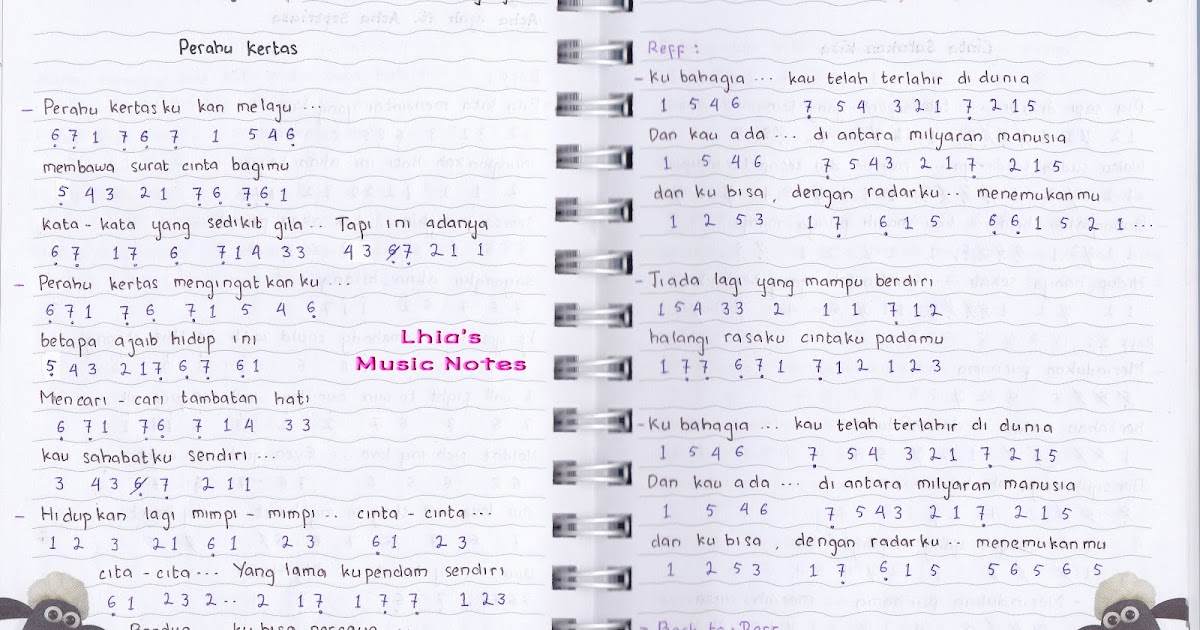 Perahu Kertas
– Perahu kertas ku kan melaju ...
6̣ 7̣ 1 7̣ 6̣ 7̣ 1 5 4 6̣
membawa surat cinta bagimu
5̣ 4 3 2 1 7̣ 6̣ 7̣ 6̣ 1
kata - kata yang sedikit gila .. Tapi ini adanya
6̣ 7̣ 1 7̣ 6̣ 7̣ 1 4 3 3 4 3 6̸ 7̣ 2 1 1
– Perahu kertas mengingat kan ku ....
6̣ 7̣ 1 7̣ 6̣ 7̣ 1 5 4 6̣
betapa ajaib hidup ini
5̣ 4 3 2 1 7̣ 6̣ 7̣ 6̣ 1
Mencari - cari tambatan hati
6̣ 7̣ 1 7̣ 6̣ 7̣ 1 4 3 3
kau sahabatku sendiri ...
3 4 3 6̸ 7̣ 2 1 1
– Hidupkan lagi mimpi - mimpi .. cinta - cinta ...
1 2 3 2 1 6̣ 1 2 3 6̣ 1 2 3
cita - cita ... Yang lama kupendam sendiri
6̣ 1 2 3 2 .. 2 1 7̣ 1 7̣ 7̣ 1 2 3
Lhia's
Music Notes
Reff :
– Ku bahagia ... kau telah terlahir di dunia
1 5 4 6 7̣ 5 4 3 2 1 7̣ 2 1 5
Dan kau ada ... di antara milyaran manusia
1 5 4 6 7̣ 5 4 3 2 1 7̣ 2 1 5
dan ku bisa , dengan radarku .. menemukanmu
1 2 5 3 1 7̣ 6̣ 1 5 6̣ 6̣ 1 5 2 1 ...
– Tiada lagi yang mampu berdiri
1 5 4 3 3 2 1 1 7̣ 1 2
halangi rasaku cintaku padamu
1 7̣ 7̣ 6̣ 7̣ 1 7̣ 1 2 1 2 3
– Ku bahagia ... kau telah terlahir di dunia
1 5 4 6 7̣ 5 4 3 2 1 7̣ 2 1 5
Dan kau ada ... di antara milyaran manusia
1 5 4 6 7̣ 5 4 3 2 1 7̣ 2 1 5
dan ku bisa , dengan radarku .. menemukanmu
1 2 5 3 1 7̣ 6̣ 1 5 5 6 5 6 5